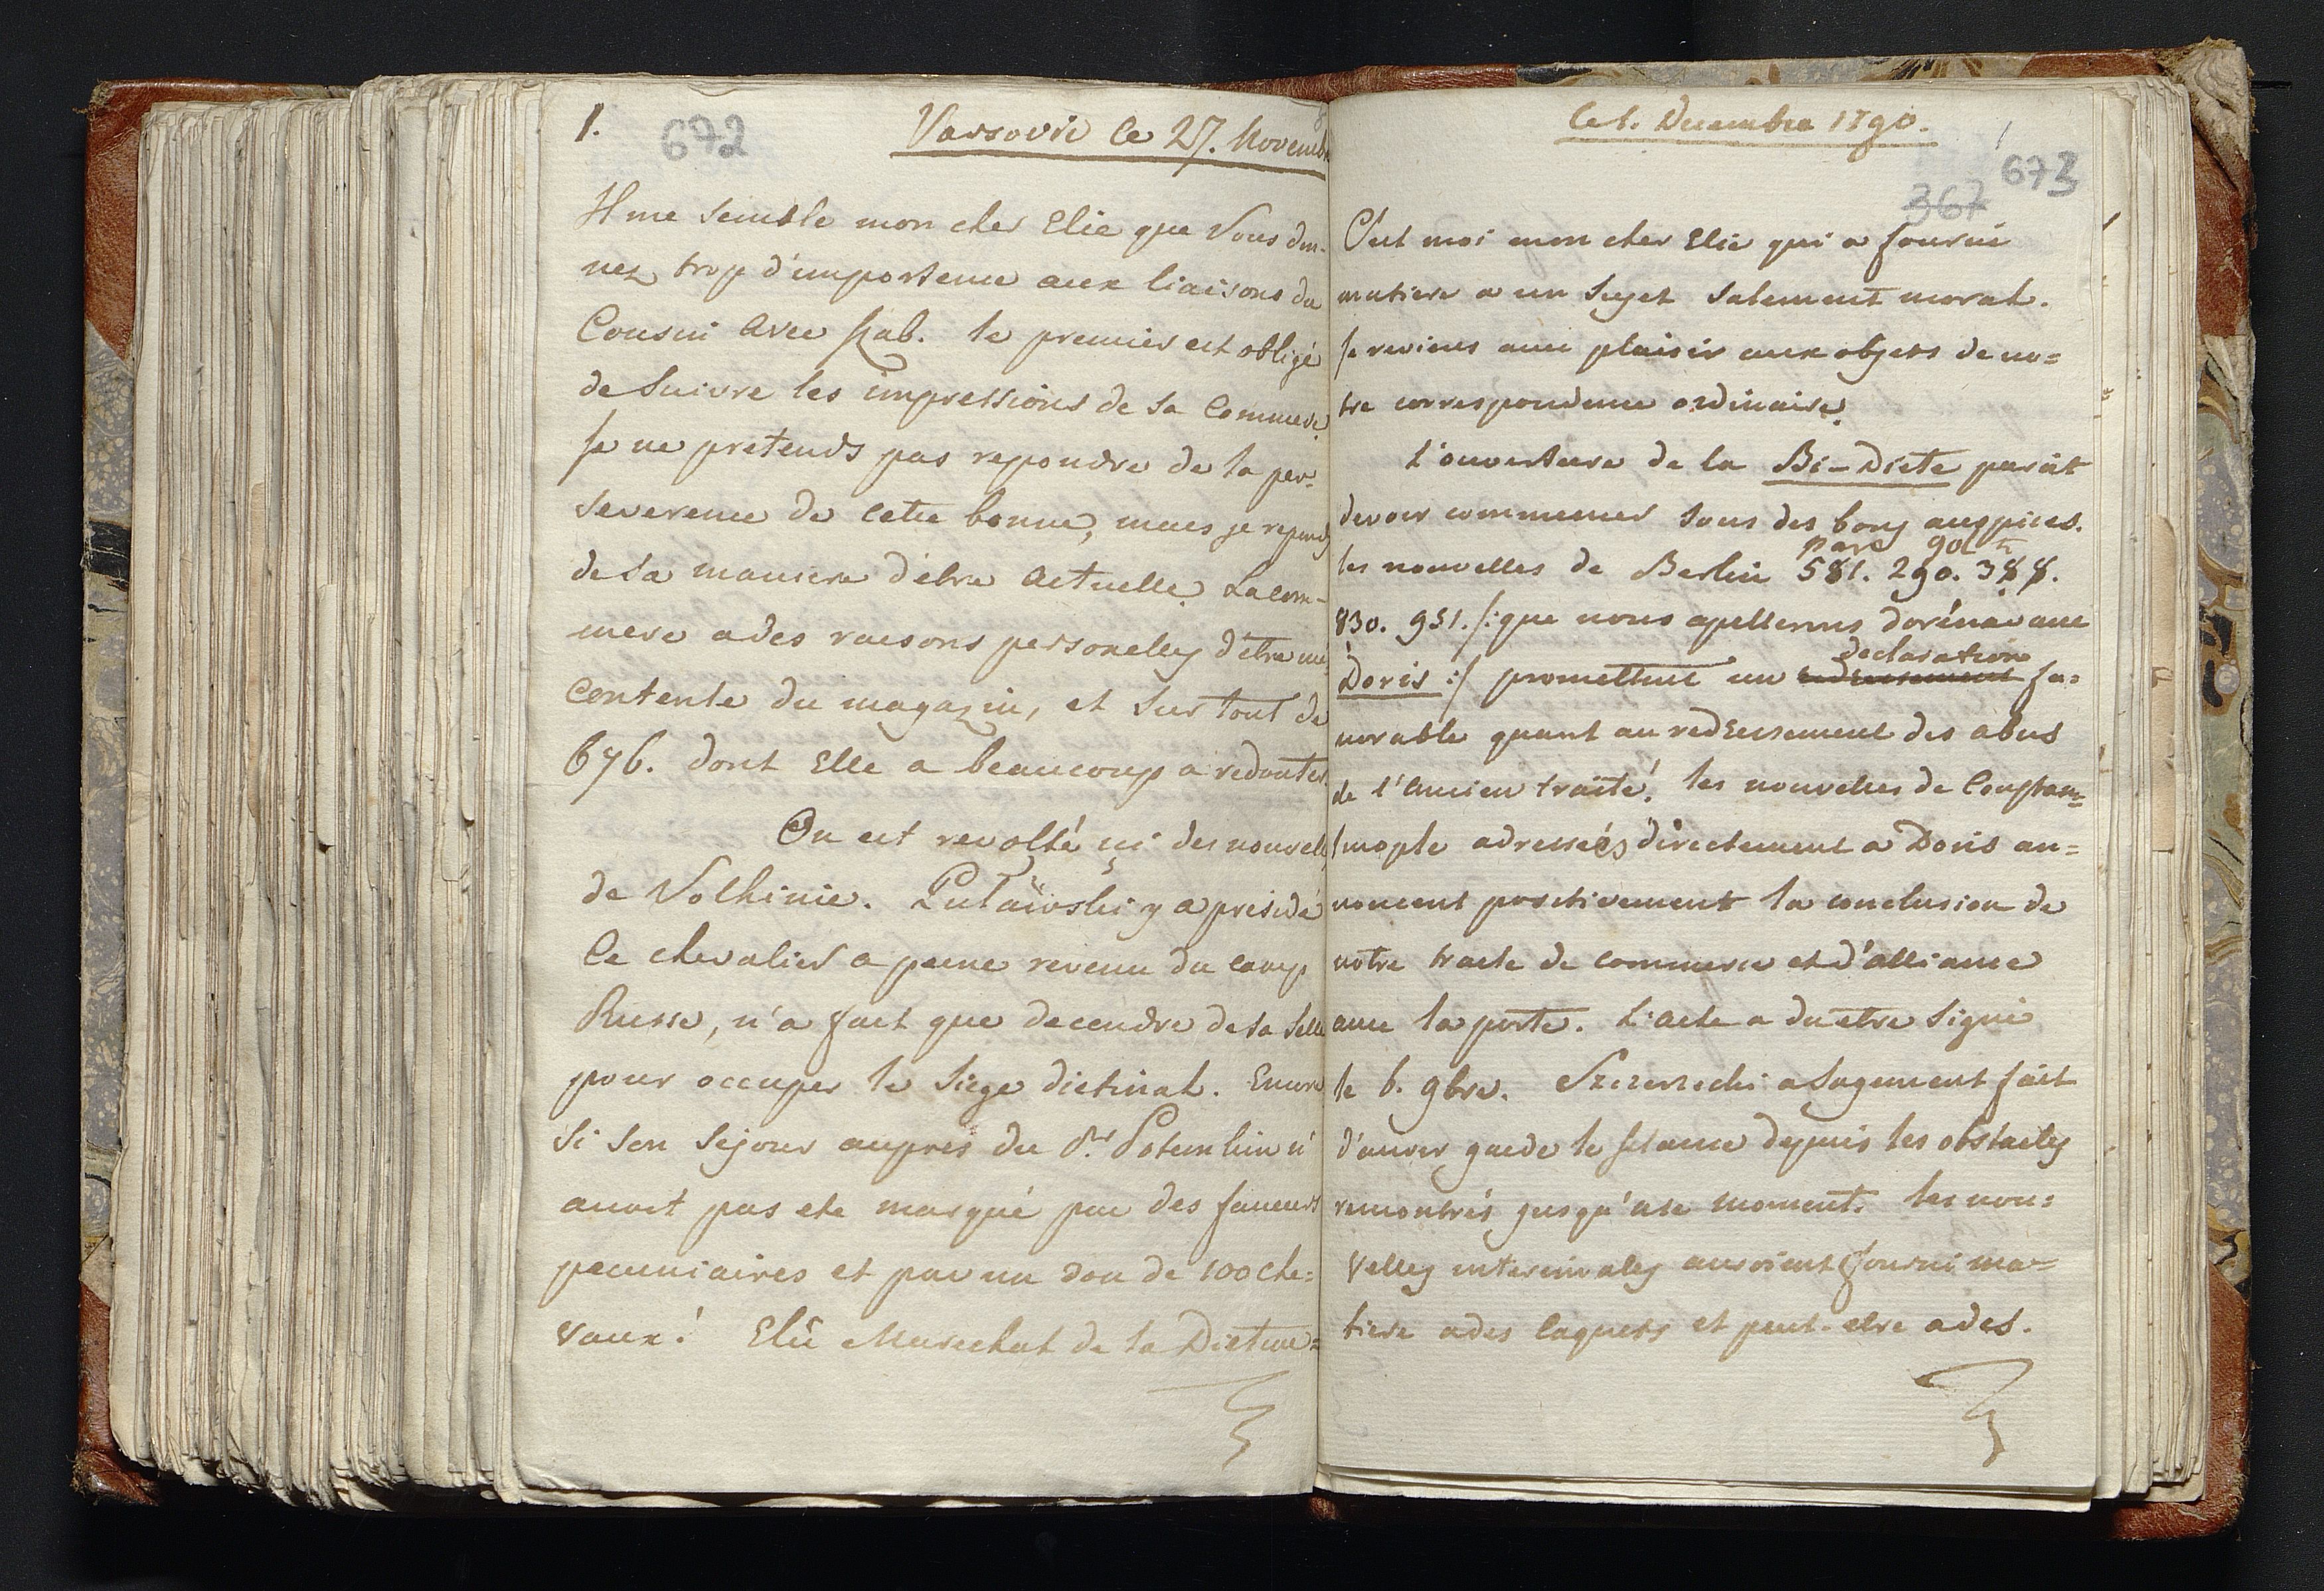 1. 672 Varsovie le 27. Novemb
Il me semble mon cher Elie que Vous don-
nez trop d'importence aux liaisons du
Cousin avec Kab. le premier est obligé
de Suivre les impressions de sa Commere.
Je ne pretends pas repondre de la per-
severence de cette bonne, mais je repond
de sa maniere d'etre actuelle. La com-
mere a des raisons personelles d'etre mé
contente du magazin, et Sur tout de
676. dont Elle a beaucoup a redouter.
On est revolté içi des nouvell
de Volhinie. Pulawski y a présidé
Ce chevalier a peine revenu du camp
Russe, n'a fait que decendre de sa Selle
pour occuper le Siege dietinal. Encore
Si Son Sejour aupres du Pr. Potemkin n'
avoit pas ete marqué par des faveurs
pecuniaires et par un don de 100 che=
vaux! Elû Marechal de la Dietine=
Le 1. Decembre 1790.
673
367
C'est moi mon cher Elie qui a fourni
matiere a un Sujet salement moral.
Je reviens avec plaisir aux objets de no=
tre correspondence ordinaire.
L'ouverture de la Bi-Diete parait
devoir commencer Sous des bons auspices.
par gol tz
les nouvelles de Berlin 581. 290. 388.
830. 951. /: que nous apellerons dorénavant
declaration
Doris :/ promettent un redressement fa=
vorable quant au redressement des abus
de l'Ancien traité! les nouvelles de Constan=
tinople adressées directement a Doris an=
noncent positivement la conclusion de
notre traite de commerce et d'alliance
avec la porte. L'acte a du etre Signé
le 6. 9bre. a Sagement fait
d'avoir gardé le silence depuis les obstacles
rencontrés jusqu'a ce moment. les nou=
velles auroient fourni ma=
tiere a des caquets et peut-etre a des.